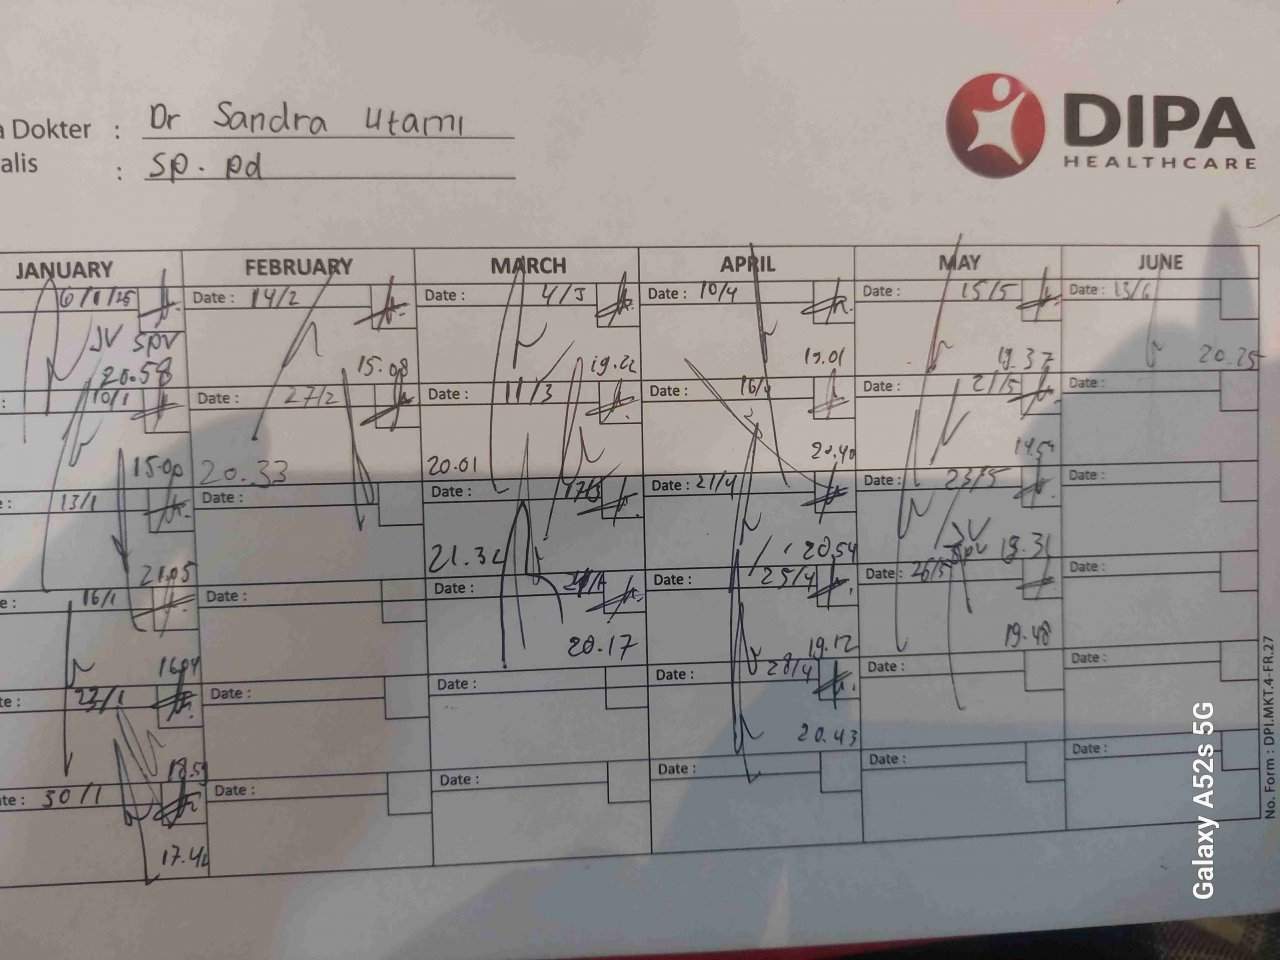 a Dokter : Dr Sandra Utami
alis : Sp. pd
DIPA
HEALTHCARE
JANUARY FEBRUARY MARCH APRIL MAY JUNE
6/1/25 Date : 14/2 Date : 4/3 Date : 10/4 Date : 15/5 Date : 13/6
JV SPV
20.58 15.08 19.22 19.37 20.25
: 10/1 Date : 27/2 Date : 11/3 16/4 Date : 21/5 Date :
15.00 20.33 20.01 20.40
e : 13/1 Date : Date : 17/3 Date : 21/4 Date : 23/5 Date :
JV
21.05 20.54 Spv 19.31
e : 16/1 Date : Date : Date : 25/4 Date : 26/5 Date :
20.17 19.12 19.48
te : 23/1 Date : Date : Date : 28/4 Date : Date :
20.43
ate : 30/1 Date : Date : Date : Date : Date :
No. Form : DPI.MKT.4-FR.27
Galaxy A52s 5G